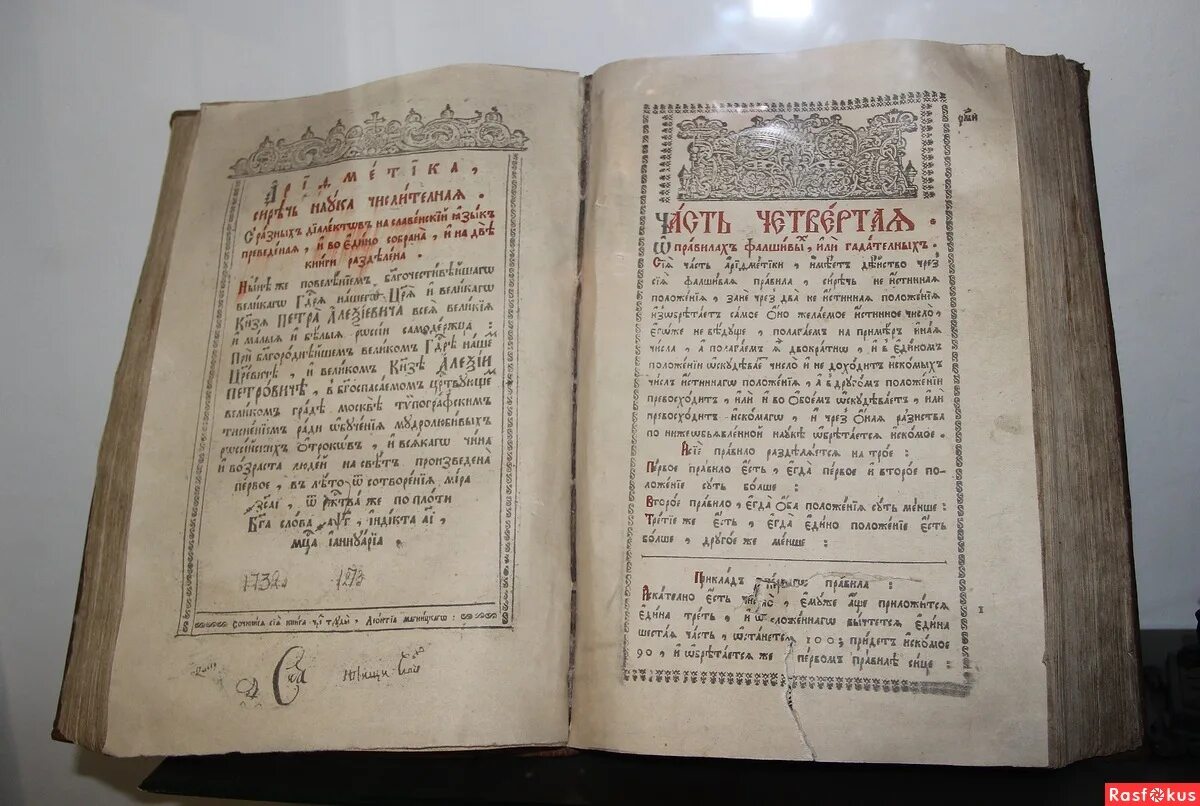 Арідметіка,
сирѣчь наука числителная.
С разныхъ діалектѡвъ на славенскій ꙗзыкъ
преведеная, и во едино собрана, и на двѣ
книги раздѣлена.
Нынѣ же повелѣніемъ благочестивѣйшагѡ
великагѡ Гдⷭ҇ря нашегѡ Цр҃я и великагѡ
Кн҃зя Петра Алеѯіевича всея великія
и малыя и бѣлыя рѡссіи самодержца:
При блг҃ороднѣйшемъ великомъ Гдⷭ҇рѣ нашемъ
Цр҃евичѣ, и великомъ Кн҃зѣ Алеѯіи
Петровичѣ, в бг҃оспасаемом црⷭ҇твующемъ
великомъ градѣ москвѣ тѷпографскимъ
тисненіемъ ради ѡбученія мудролюбивыхъ
рѡссійскихъ отрокѡвъ, и всякагѡ чина
и возраста людей на свѣтъ произведена
первое, в лѣто ѿ сотворенія міра
҂зсаі, ѿ ржⷭ҇тва же по плоти
Бг҃а слова ҂аѱг, індікта аі,
мцⷭ҇а іаннуаріа.
1732
Сочинися сія книга чрⷥ труды, Леонтіа магницкагѡ:
Часть четвертая.
Ѡ правилахъ фалшивыхъ, или гадателныхъ.
Сія часть аріѳметіки, имѣетъ дѣйство чрез
сія фалшивая правила, сирѣчь не истинная
положенія, зане чрез два не истинная положенія
изѡбрѣтаетъ самое оно желаемое истинное число,
егѡже не вѣдуще, полагаемъ на примѣръ иная
числа, а полагаем я двократнѡ, и в единомъ
положеніи ѡскудѣваетъ число и не доходитъ искомыхъ
числъ истиннагѡ положенія, а в другомъ положеніи
превосходитъ, или и во обоемъ ѡскудѣваетъ, или
превосходитъ искомагѡ, и чрез оная разнства
по нижеобьявленной наукѣ ѡбрѣтается искомое.
А сіе правило раздѣляется на трое:
Первое правило есть, егда первое и второе по-
ложеніе суть болше:
Второе правило, егда оба положенія суть менше:
Третіе же есть, егда едино положеніе есть
болше, другое же менше:
Прикладъ перваго правила:
Искателно есть число, емуже аще приложится
едина треть, и ѿ сложеннагѡ вычтется едина
шестая часть, ѡстанется 100, придетъ искомое
90, и ѡбрѣтается же первомъ правилѣ сице:
Rasfokus